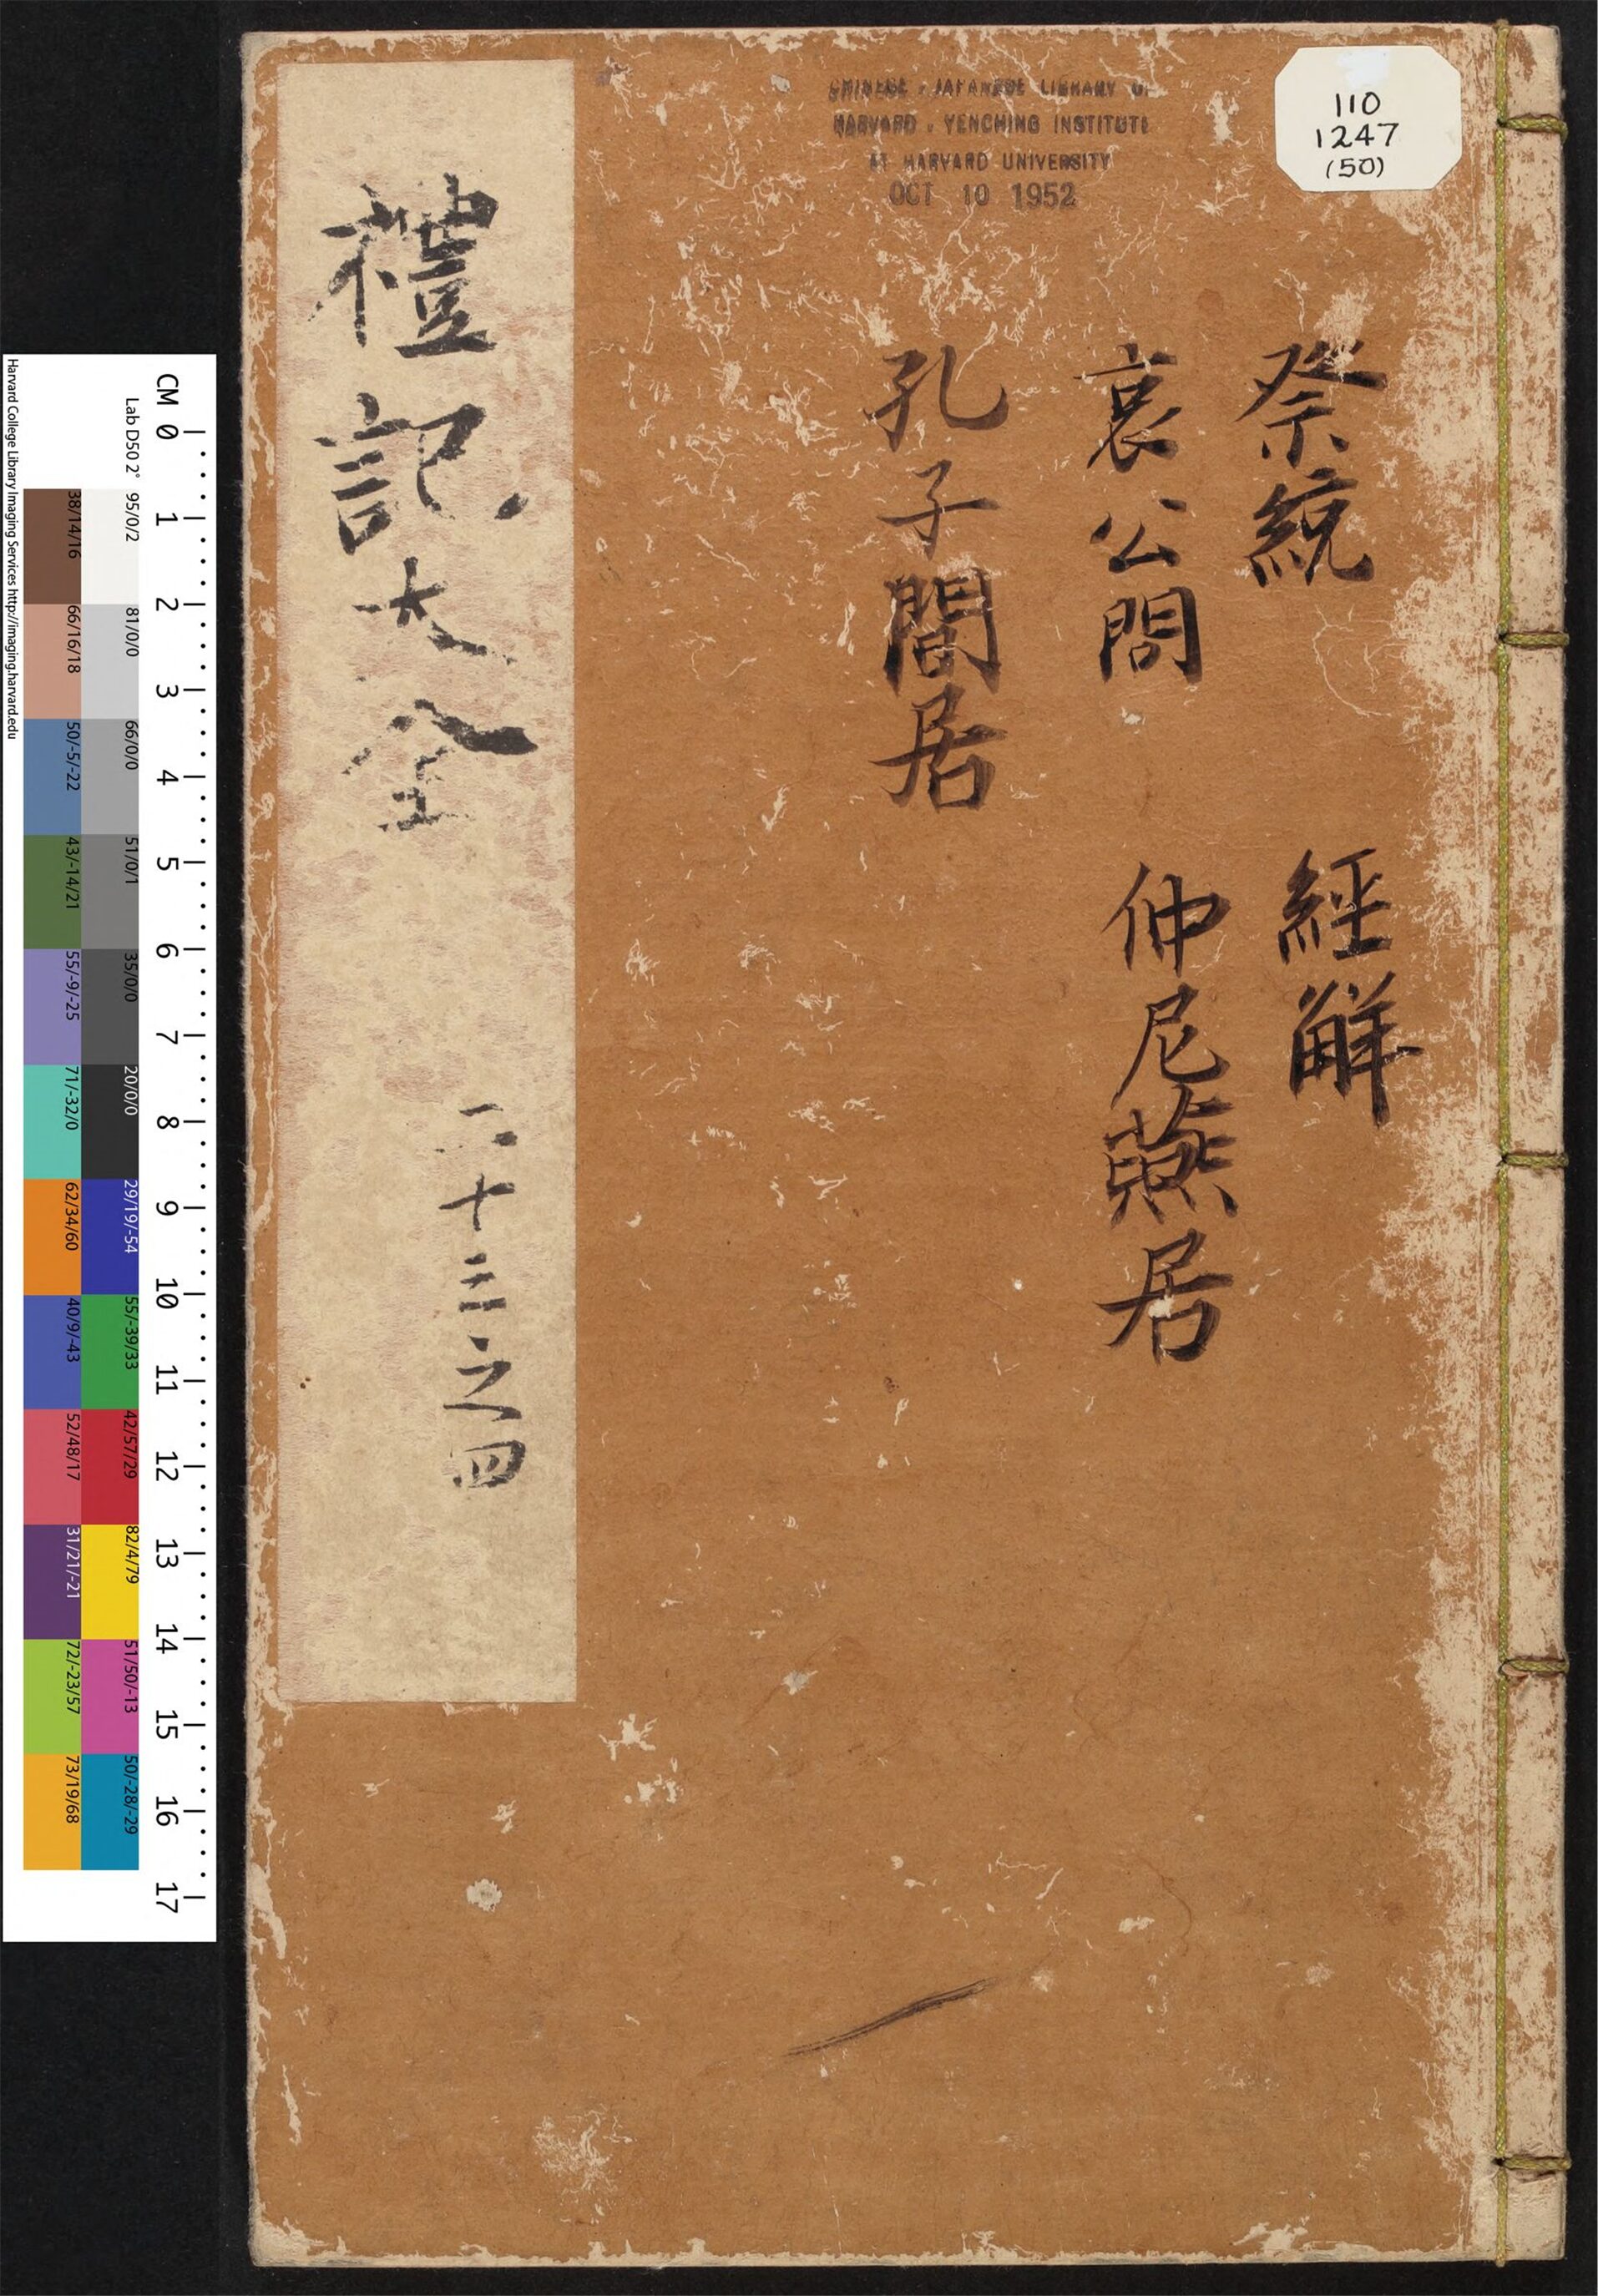 禮記大全
二十三之四
祭統 經解
哀公問 仲尼燕居
孔子閒居
CHINESE - JAPANESE LIBRARY OF
HARVARD - YENCHING INSTITUTE
AT HARVARD UNIVERSITY
OCT 10 1952
110
1247
(50)
Harvard College Library Imaging Services http://imaging.harvard.edu
Lab D50 2°
CM 0 1 2 3 4 5 6 7 8 9 10 11 12 13 14 15 16 17
95/0/2
81/0/0
66/0/0
51/0/1
35/0/0
20/0/0
29/19/-54
55/-39/33
42/57/29
82/4/79
51/50/-13
50/-28/-29
38/14/16
66/16/18
50/-5/-22
43/-14/21
55/-9/-25
71/-32/0
62/34/60
40/9/-43
52/48/17
31/21/-21
72/-23/57
73/19/68